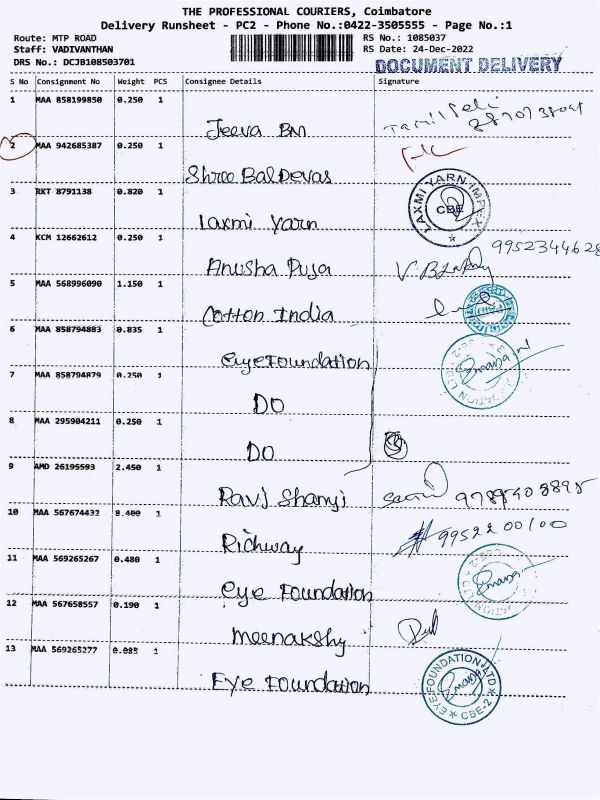 THE PROFESSIONAL COURIERS, Coimbatore
Delivery Runsheet - PC2 - Phone No.:0422-3505555 - Page No.:1
Route: MTP ROAD
Staff: VADIVANTHAN
DRS No.: DCJB108503701
RS No.: 1085037
RS Date: 24-Dec-2022
DOCUMENT DELIVERY
S No Consignment No Weight PCS Consignee Details Signature
1 MAA 858199850 0.250 1 Jeeva BM
2 MAA 942685387 0.250 1 Shree BalDevas
3 RKT 8791138 0.820 1 Laxmi Yarn LAXMI YARN IMPEX CBE
4 KCM 12662612 0.250 1 Anusha Puja 9952344628
5 MAA 568996090 1.150 1 Cotton India
6 MAA 858794883 0.835 1 Eye Foundation
7 MAA 858794879 0.250 1 DO
8 MAA 295904211 0.250 1 DO
9 AMD 26195593 2.450 1
10 MAA 567674432 1 Richway 9952200100
11 MAA 569265267 0.480 1 Eye Foundation
12 MAA 567658557 0.190 1 Meenakshy
13 MAA 569265277 0.085 1 Eye Foundation EYE FOUNDATION LTD CBE-2